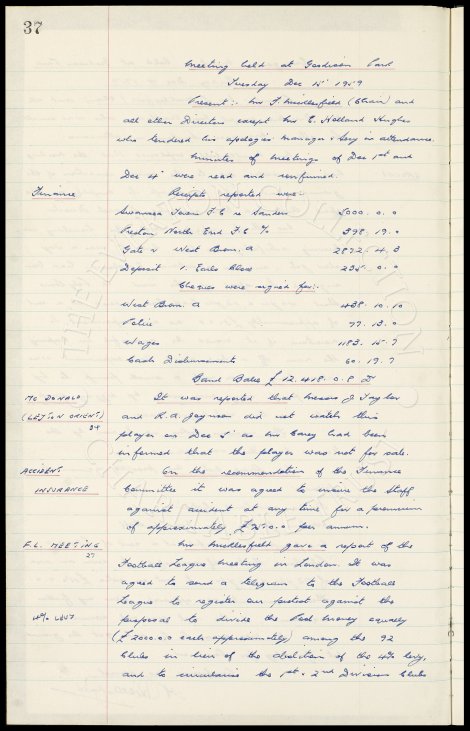 37
Meeting held at Goodison Park
Tuesday Dec 15th 1959
Present:- Mr F. Micklesfield (Chair) and
all other Directors except Mr C. Holland Hughes
who tendered his apologies manager & Secy in attendance.
Minutes of meetings of Dec 1st and
Dec 4th were read and confirmed.
Finance Receipts reported were:-
Swansea Town F.C. re Sanders 3000. 0. 0
Preston North End F.C. % 398. 19. 0
Gate v West Brom. A 2872. 4. 3
Deposit 1. Earls Close 235. 0. 0
Cheques were signed for:-
West Brom. A 438. 10. 10
Police 77. 13. 0
Wages 1183. 15. 7
Cash Disbursements 60. 19. 7
Bank Balce £ 12,418. 0. 8 D
MC DONALD It was reported that Messrs J. Taylor
(LEYTON ORIENT) and R.A. Joynson did not watch this
24 player on Dec 5th as Mr Carey had been
informed that the player was not for sale.
ACCIDENT On the recommendation of the Finance
INSURANCE Committee it was agreed to insure the Staff
against accident at any time for a premium
of approximately £ 75. 0. 0 per annum.
F.L. MEETING Mr Micklesfield gave a report of the
27 Football League meeting in London. It was
agreed to send a telegram to the Football
League to register our protest against the
4% LEVY proposal to divide the Pool money equally
(£ 2000. 0. 0 each approximately) among the 92
Clubs in lieu of the abolition of the 4% levy,
and to circularise the 1st & 2nd Division Clubs